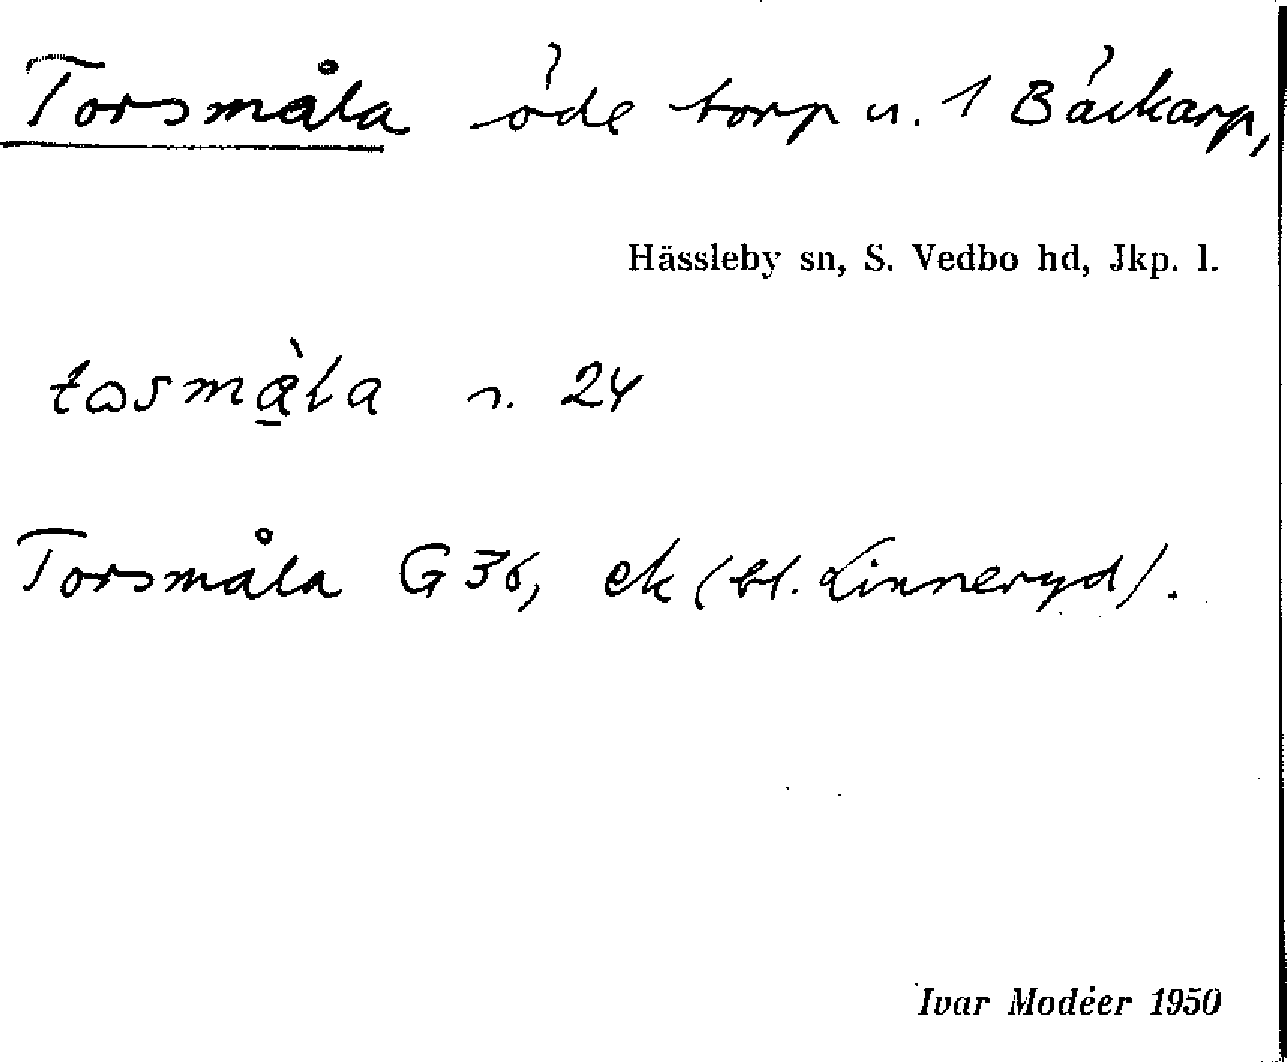 Torsmåla öde torp u. 1 Bäckarp,
Hässleby sn, S. Vedbo hd, Jkp. l.
tɷsmàla n. 24
Torsmåla G 36, ek (bl. Linneryd).
Ivar Modéer 1950